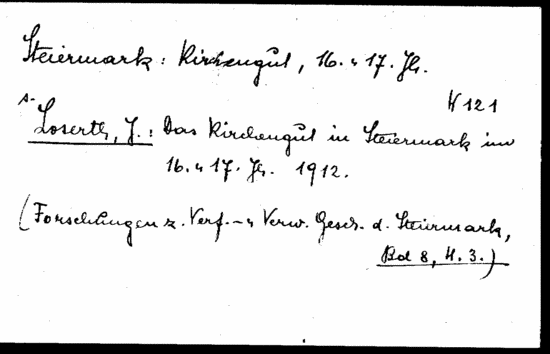 Steiermark: Kirchengut, 16. u 17. Jh.
H 121
s. Loserth, J.: Das Kirchengut in Steiermark im
16. u 17. Jh. 1912.
(Forschungen z. Verf.- u Verw. Gesch. d. Steiermark,
Bd 8, H. 3.)